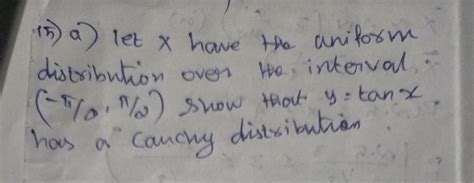 15) a) let x have the uniform
distribution over the interval
(-π/2, π/2) show that y = tan x.
has a Cauchy distribution